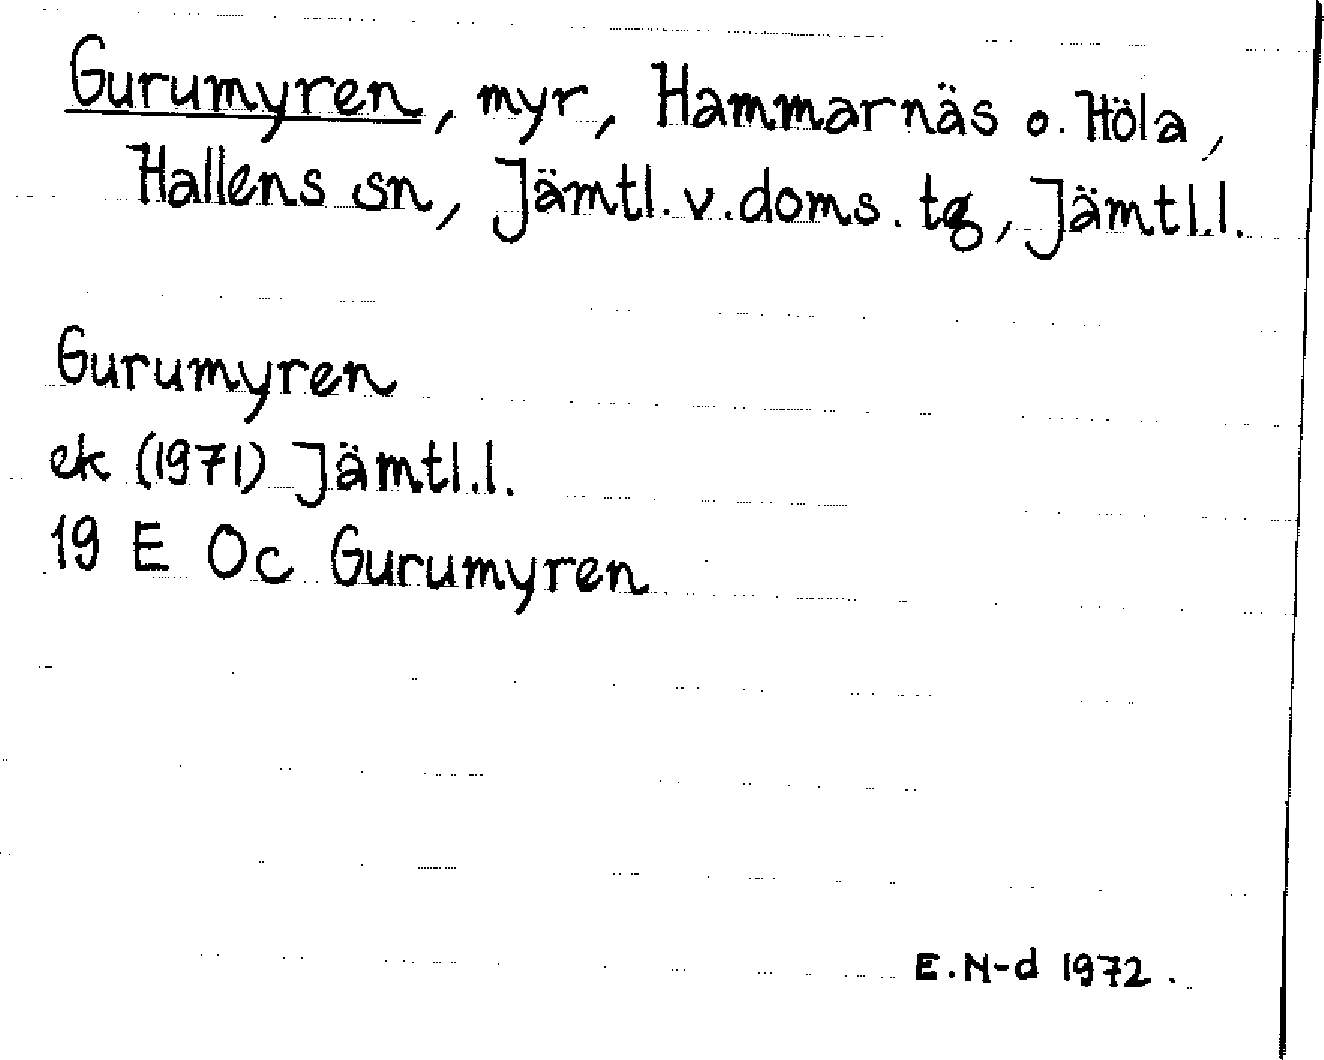 Gurumyren, myr, Hammarnäs o. Höla,
Hallens sn, Jämtl. v. doms. tg, Jämtl.l.
Gurumyren
ek (1971) Jämtl.l.
19 E Oc Gurumyren
E.N-d 1972.